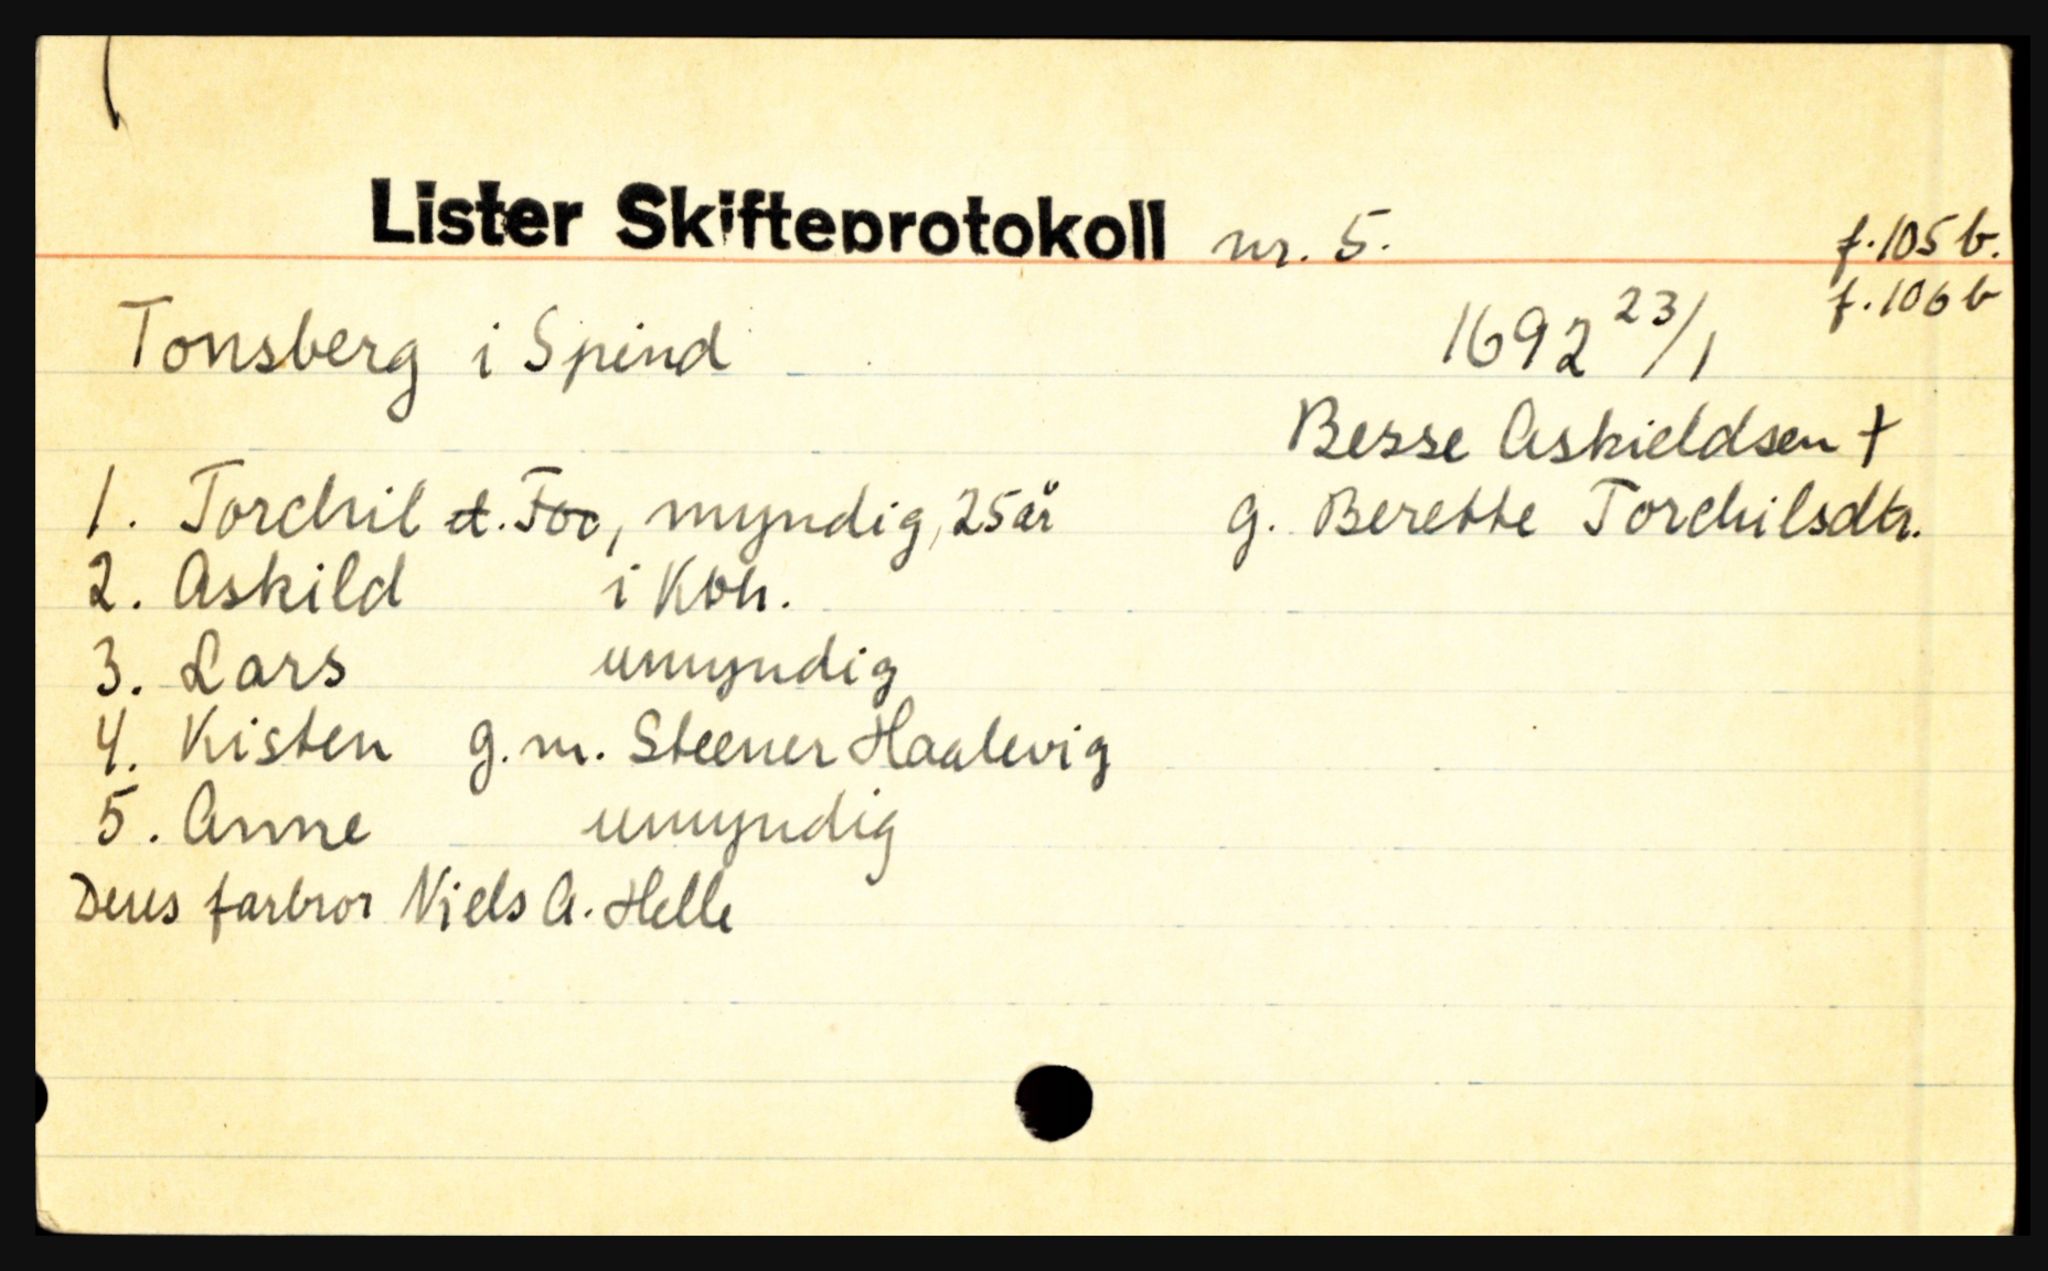 Lister Skifteprotokoll nr. 5. f. 105 b.
f. 106 b
Tonsberg i Spind 1692 23/1
Besse Askieldsen †
1. Torchil d. Foo, myndig, 25 år g. Berette Torchilsdtr.
2. Askild i Kbh.
3. Lars umyndig
4. Kisten g. m. Steener Haalevig
5. Anne umyndig
Deres farbror Niels A. Helle